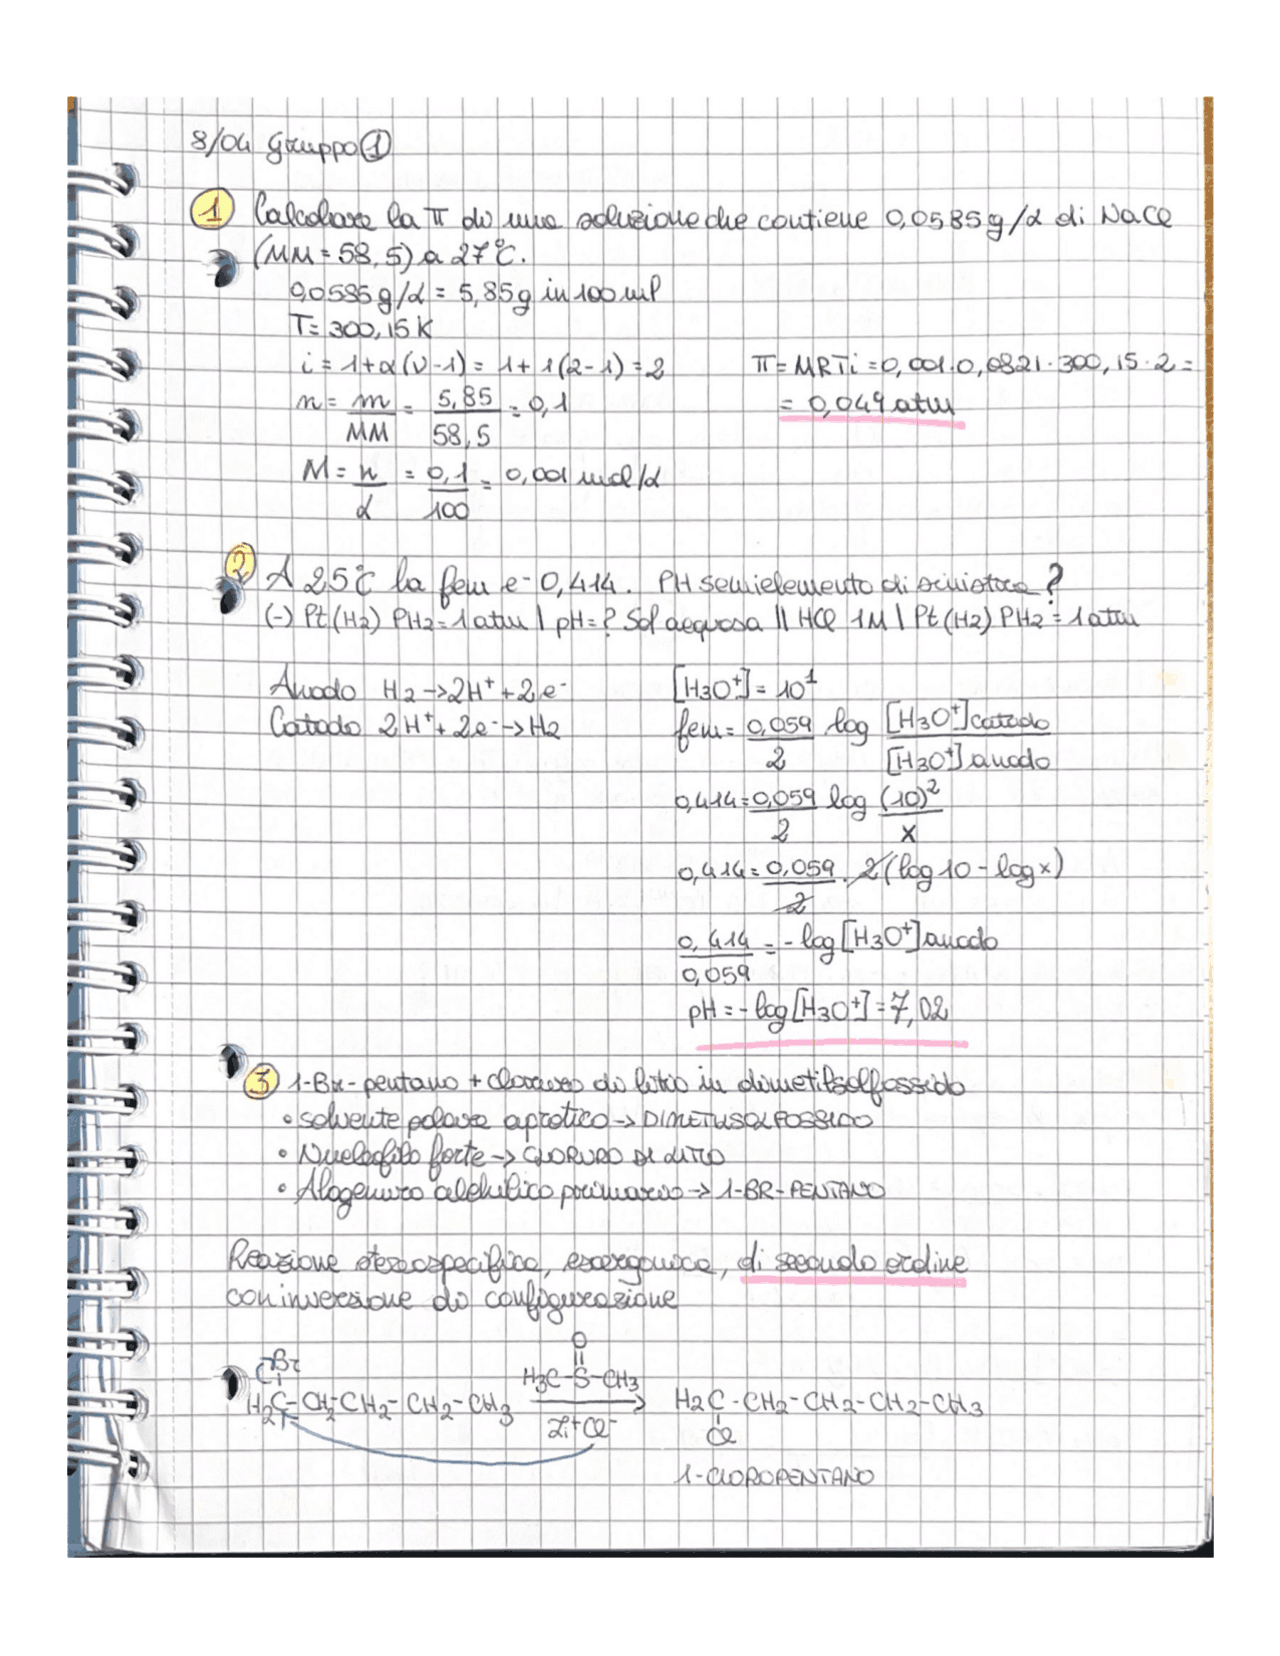 8/04 Gruppo 1
1 Calcolare la π di una soluzione che contiene 0,0585g/L di NaCl
(MM=58,5) a 27°C.
0,0585g/L = 5,85g in 100 ml
T= 300,15K
i = 1+α(ν-1) = 1+1(2-1) = 2
π=MRTi=0,001·0,0821·300,15·2=
n = m/MM = 5,85/58,5 = 0,1
= 0,049 atm
M = n/L = 0,1/100 = 0,001 mol/L
2 A 25°C la fem è 0,414. PH semielemento di sinistra?
(-) Pt(H2) PH2=1atm | pH=? Sol acquosa || HCl 1M | Pt(H2) PH2=1atm
Anodo H2->2H⁺+2e⁻
[H3O⁺]= 10¹
Catodo 2H⁺+2e⁻->H2
fem= 0,059/2 log [H3O⁺]catodo/[H3O⁺]anodo
0,414=0,059/2 log (10)²/x
0,414=0,059/2 · 2(log10-logx)
0,414/0,059 = -log[H3O⁺]anodo
pH=-log[H3O⁺]=7,02
3 1-Br-pentano + cloruro di litio in dimetilsolfossido
• solvente polare aprotico-> DIMETILSOLFOSSIDO
• Nucleofilo forte-> CLORURO DI LITIO
• Alogenuro alchilico primario-> 1-BR-PENTANO
Reazione stereospecifica, esoergonica, di secondo ordine
con inversione di configurazione
O
Br
H3C-S-CH3
H2C-CH2-CH2-CH2-CH3
H2C-CH2-CH2-CH2-CH3
Li⁺Cl⁻
Cl
1-CLOROPENTANO